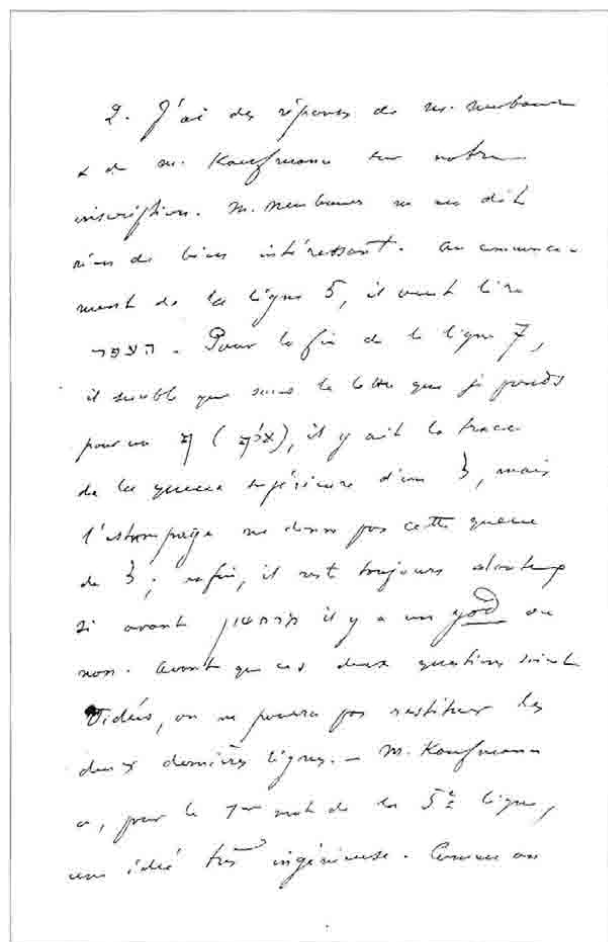 2. J'ai des réponses de M. Neubauer
& de M. Kaufmann sur notre
inscription. M. Neubauer ne me dit
rien de bien intéressant. Au commence-
ment de la ligne 5, il veut lire
הצפר. Pour la fin de la ligne 7,
il semble que sous la lettre que je prends
pour un ף (אלף), il y ait la trace
de la queue supérieure d'un ל, mais
l'estompage ne donne pas cette queue
de ל; enfin, il est toujours douteux
si avant מרחשון il y a un yod ou
non. Avant que ces deux questions soient
vidées, on ne pourra pas restituer les
deux dernières lignes. — M. Kaufmann
a, pour le 1er mot de la 5e ligne,
une idée très ingénieuse. Comme on